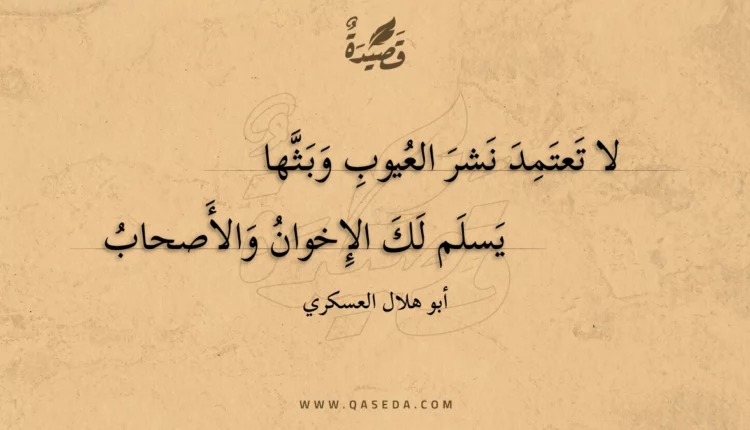 قَصِيدَةٌ
لا تَعتَمِدَ نَشرَ العُيوبِ وَبَثَّها
يَسلَم لَكَ الإِخوانُ وَالأَصحابُ
أبو هلال العسكري
WWW.QASEDA.COM